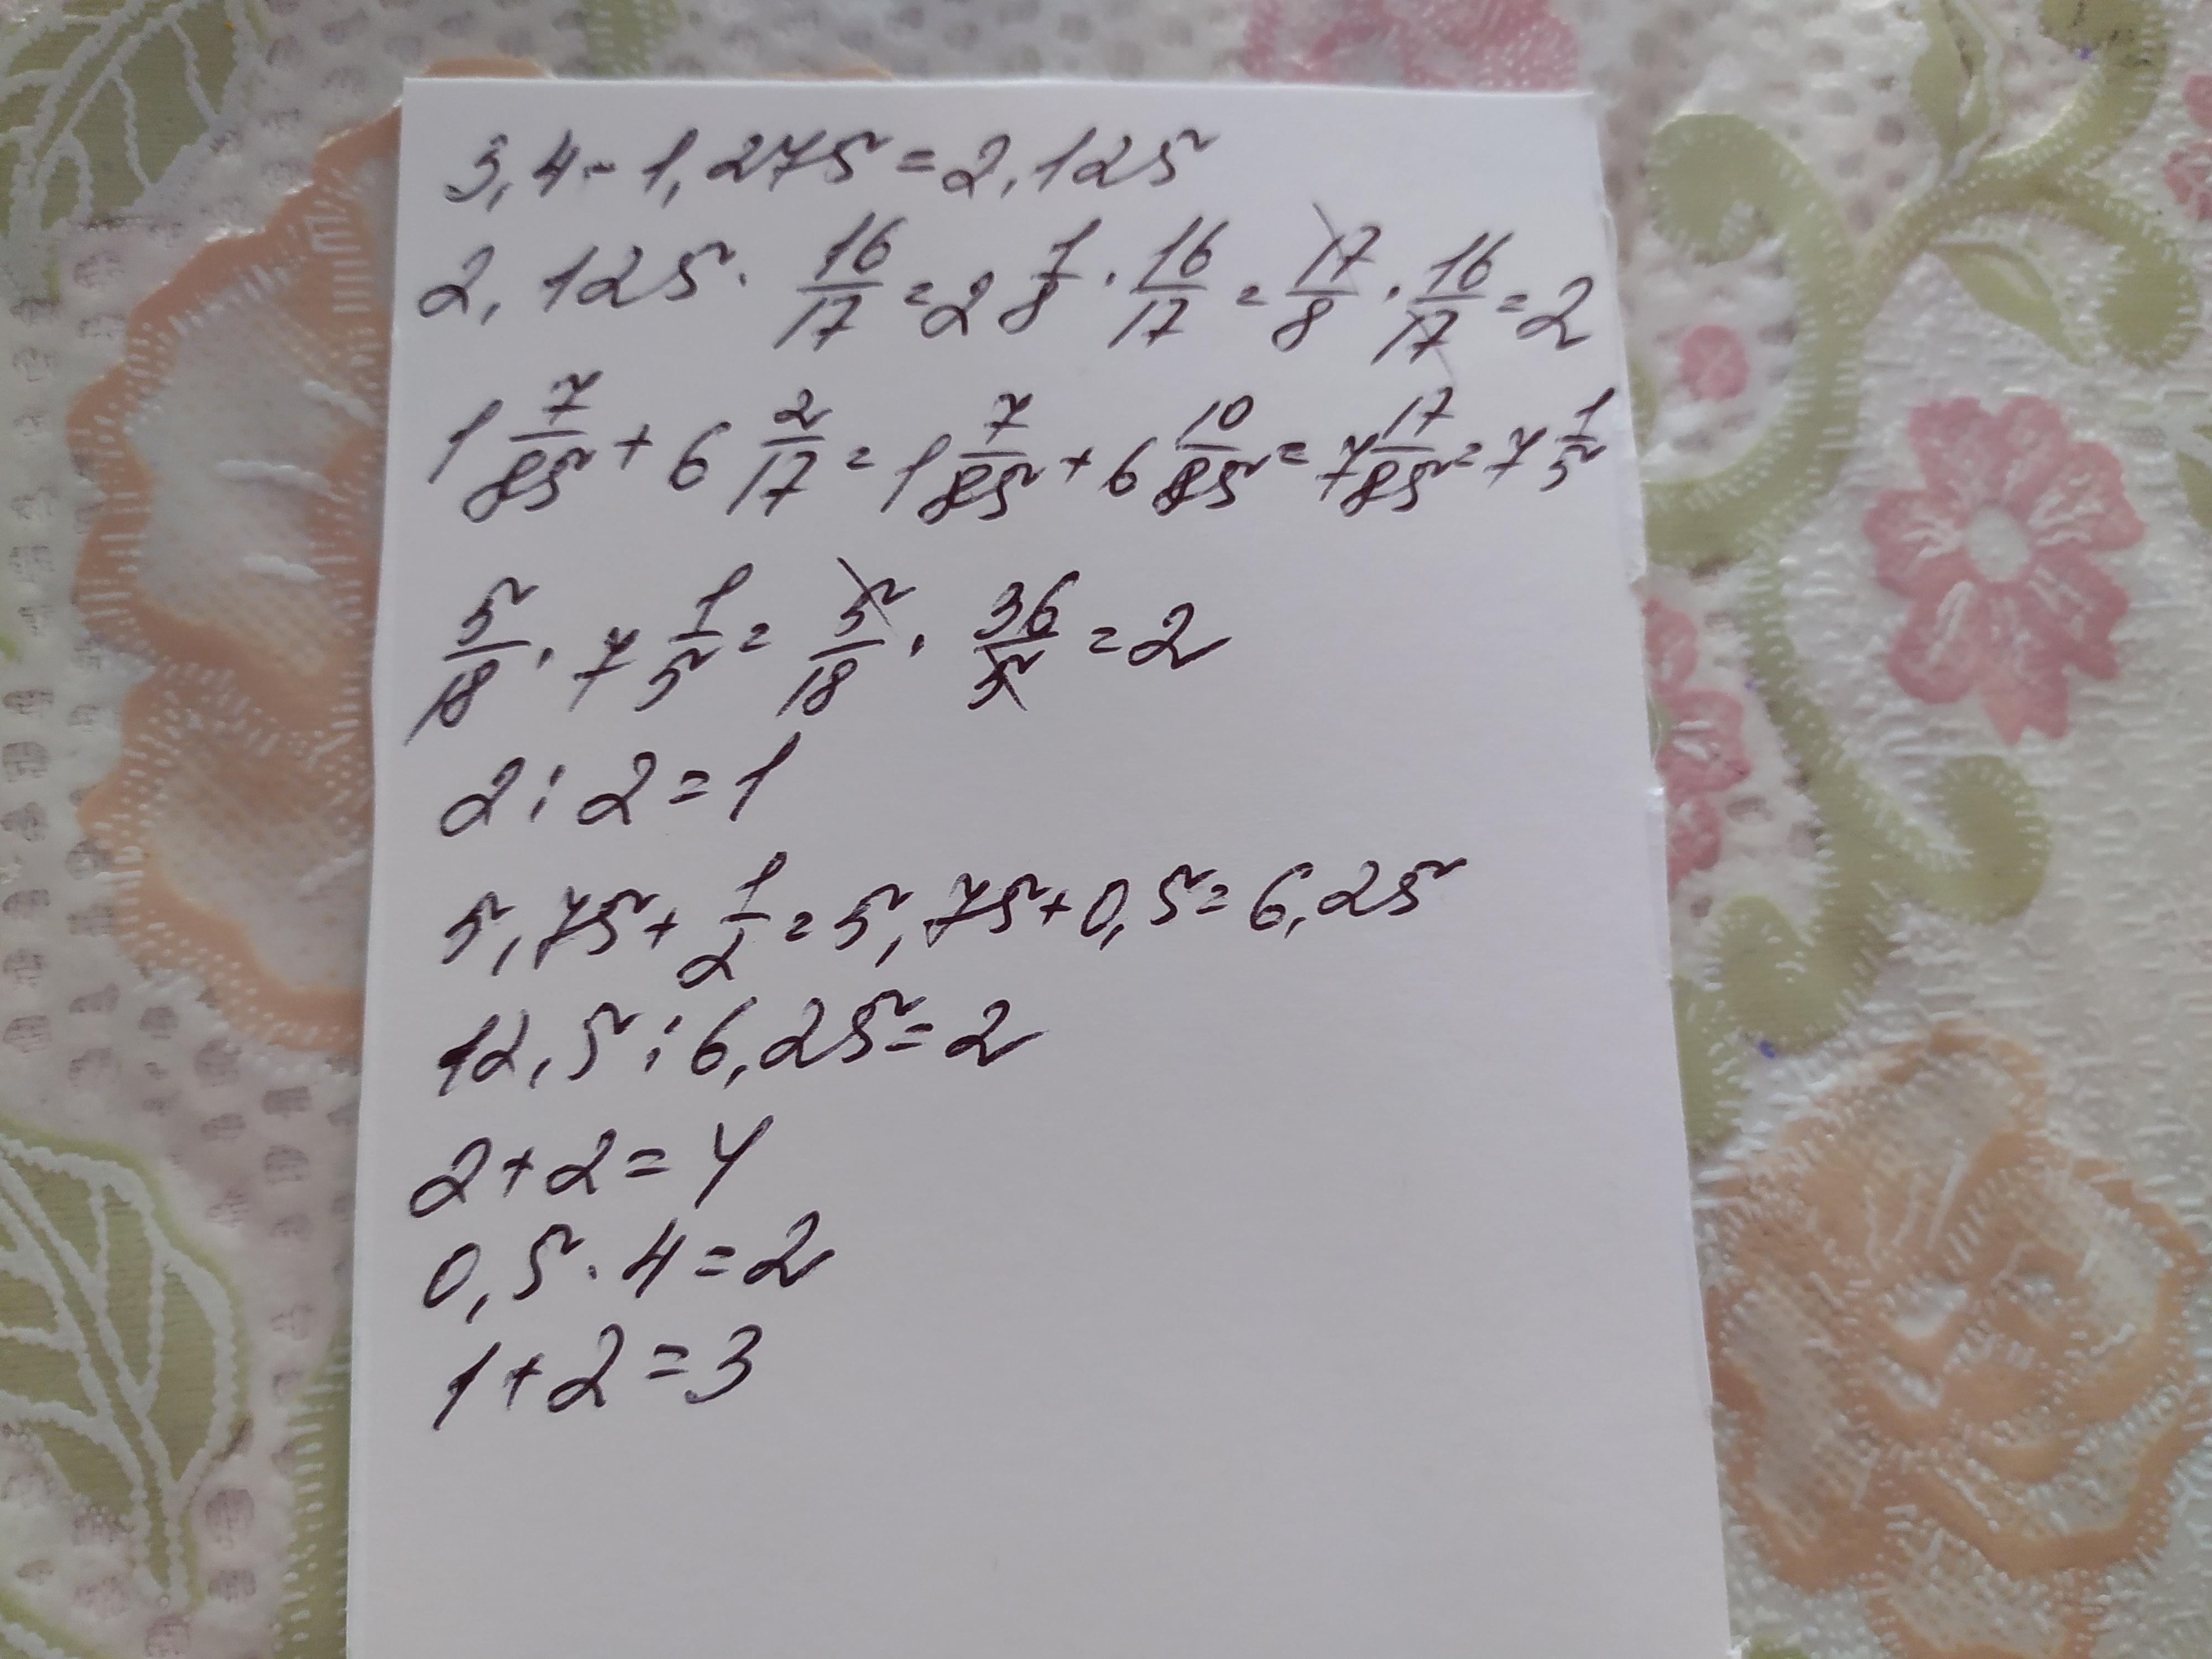 3,4-1,275=2,125
2,125·16/17=2 1/8·16/17=17/8·16/17=2
1 7/85+6 2/17=1 7/85+6 10/85=7 17/85=7 1/5
5/18·7 1/5=5/18·36/5=2
2:2=1
5,75+1/2=5,75+0,5=6,25
12,5:6,25=2
2+2=4
0,5·4=2
1+2=3